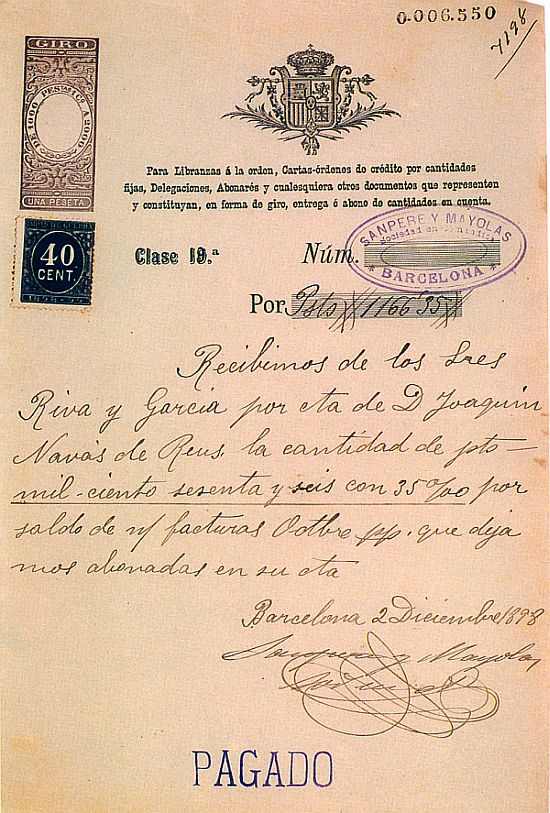 0.006.550
7198
GIRO
DE 1000 PESTAS 1 CS A 2000
UNA PESETA
Para Libranzas á la orden, Cartas-órdenes de crédito por cantidades
fijas, Delegaciones, Abonarés y cualesquiera otros documentos que representen
y constituyan, en forma de giro, entrega ó abono de cantidades en cuenta.
40
CENT.
1898-99
Clase 19.ª
Núm.
SANPERE Y MAYOLAS
Sociedad en Comandita
BARCELONA
Por Psts 1166'35
Recibimos de los Sres
Riva y Garcia por cta de D Joaquin
Navás de Reus. la cantidad de pts
mil-ciento sesenta y seis con 35 %00 por
saldo de n/ facturas Octbre pp. que deja
mos abonadas en su cta
Barcelona 2 Diciembre 1898
Sanpere y Mayolas
PAGADO